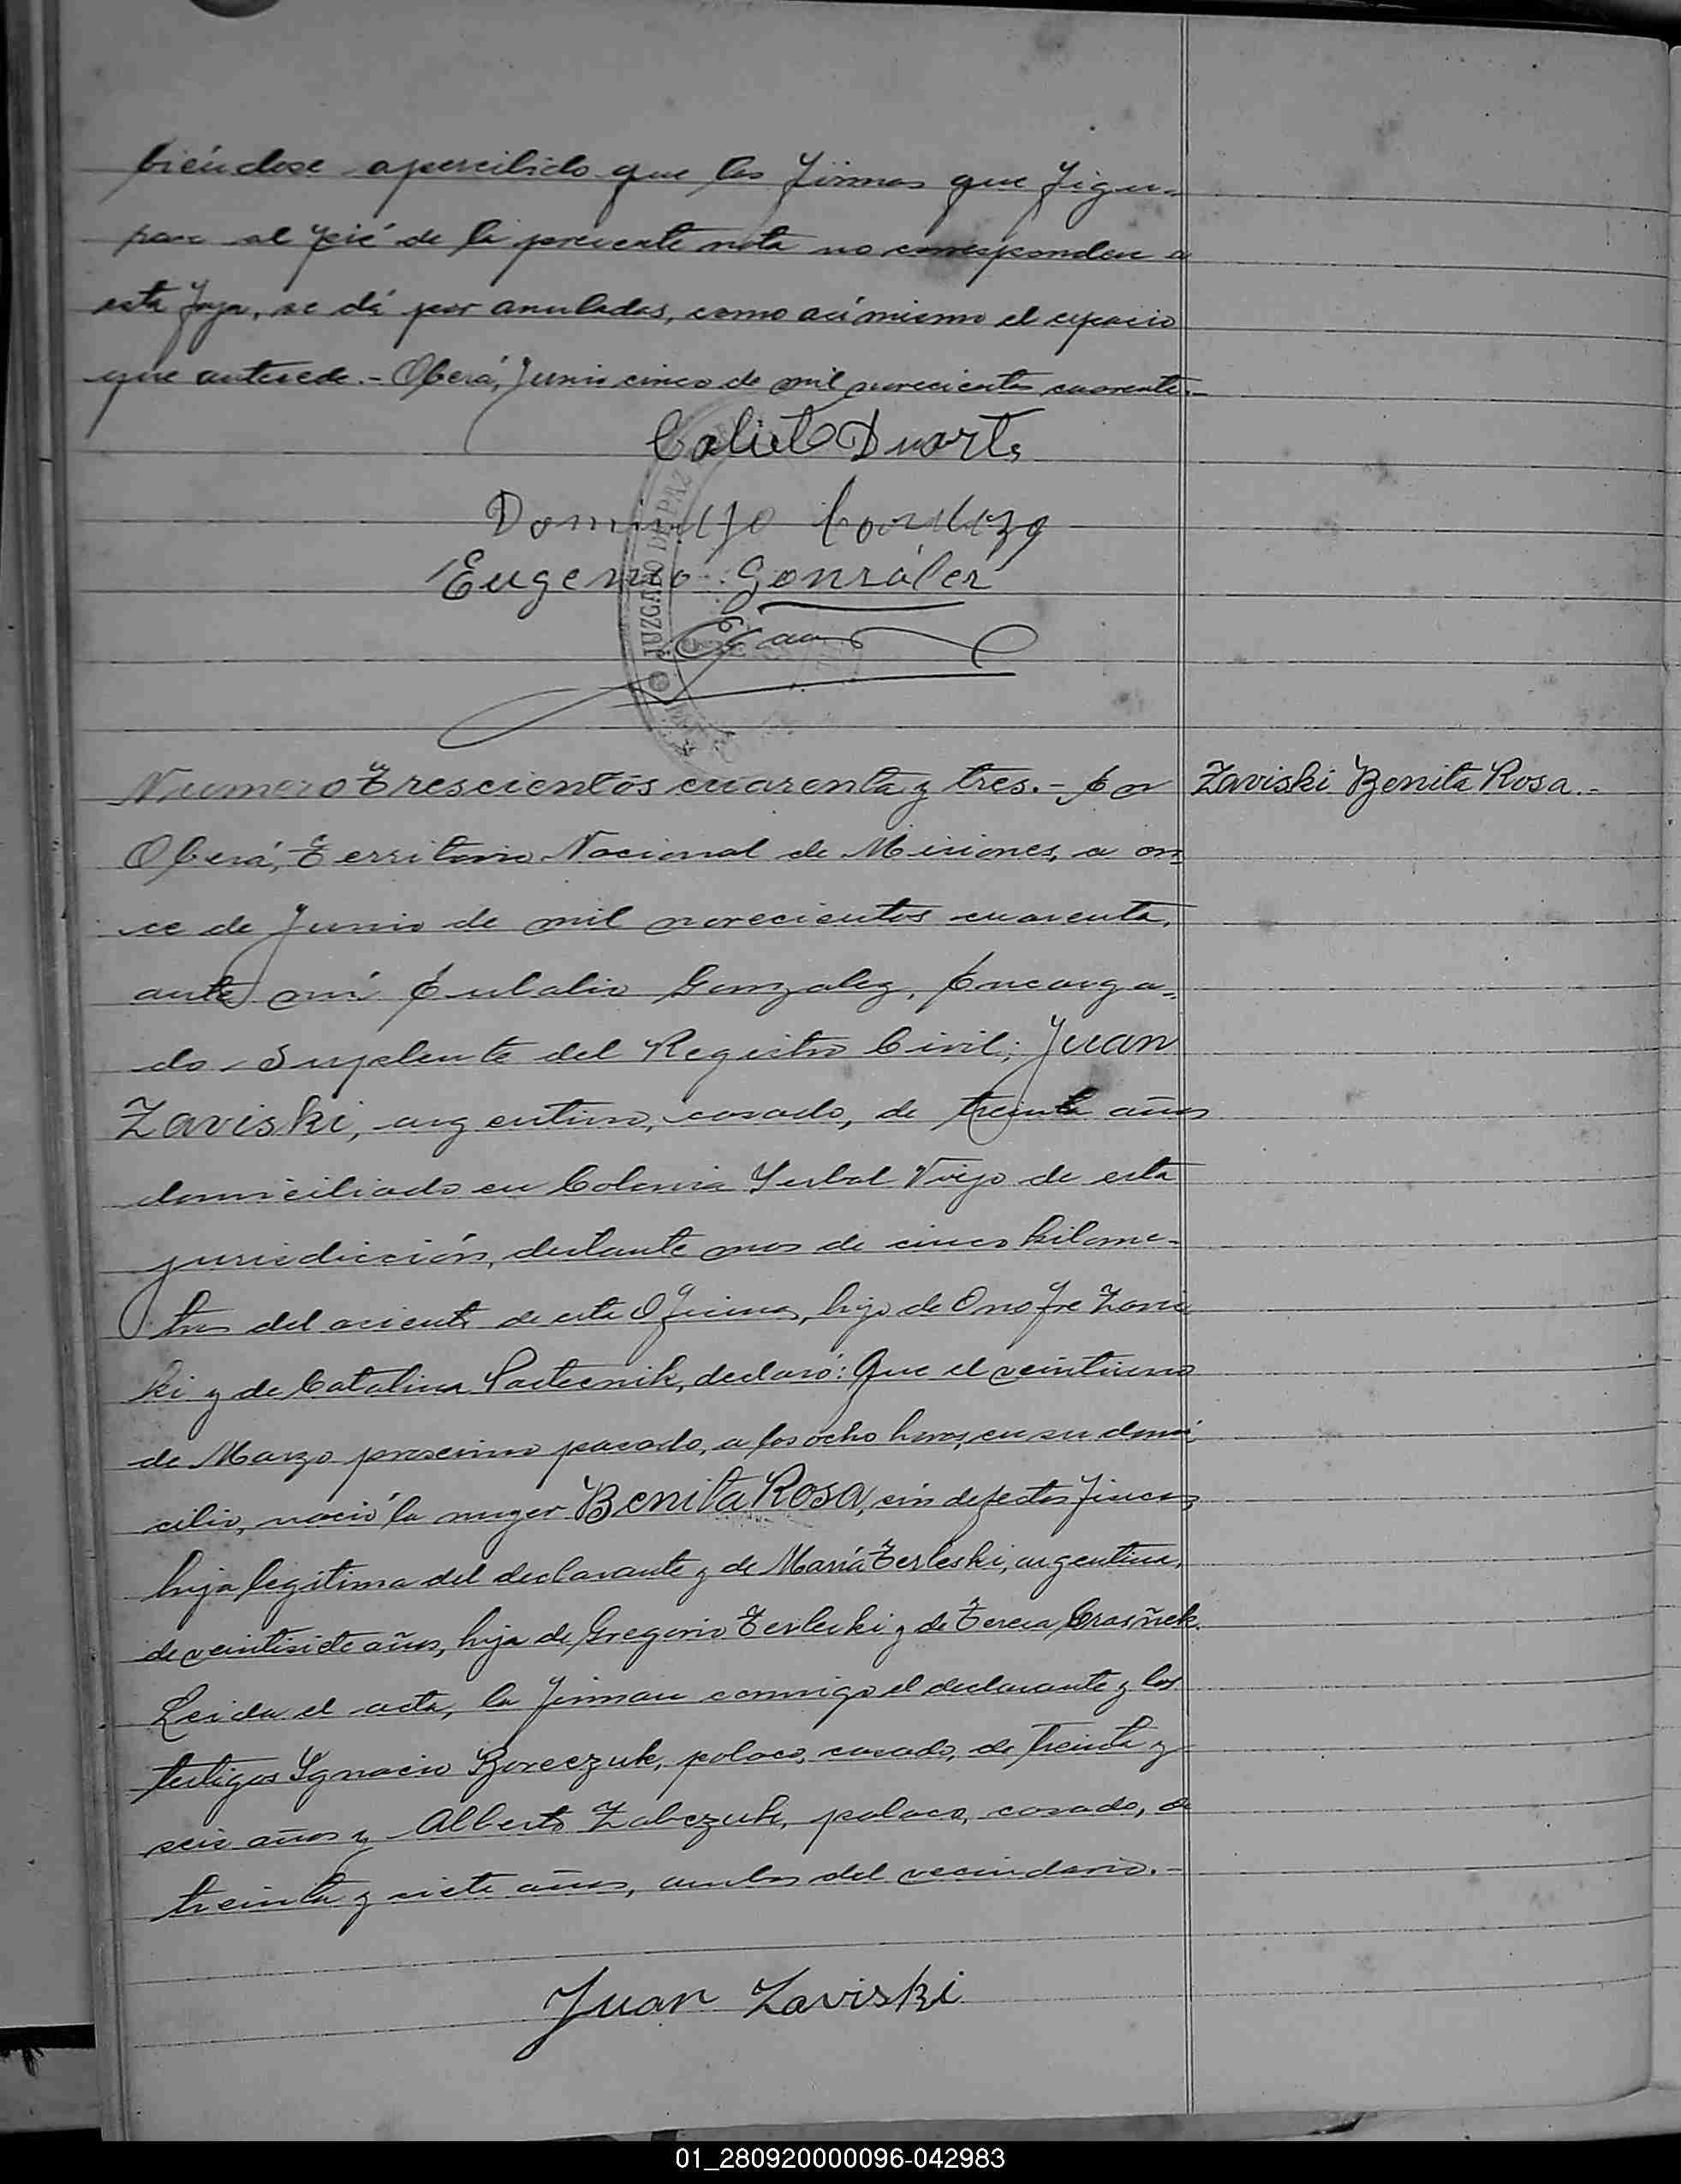 biéndose apercibido que las firmas que figu-
ran al pié de la precente nota no corresponden a
esta foja, se dá por anuladas, como asimismo el espacio
que antesede.- Oberá, Junio cinco de mil novecientos cuarenta.-
Duarte
Domingo
Eugenio González
JUZGADO DE PAZ
Numero Trescientos cuarenta y tres.- En
Zaviski Benita Rosa.-
Oberá, Territorio Nacional de Misiones, a on
ce de Junio de mil novecientos cuarenta,
ante mí Eulalio Gonzalez, Encarga-
do Suplente del Registro Civil; Juan
Zaviski, argentino, casado, de treinta años
domiciliado en Colonia Yerbal Viejo de esta
jurisdicción, distante mas de cinco kilome-
tros del aciento de esta Oficina, hijo de Onofre Zavis
ki y de Catalina, declaró: Que el veintiuno
de Marzo procsimo pasado, a las ocho horas, en su domi
cilio, nació la muger Benita Rosa, sin defectos fisicos,
hija legítima del declarante y de María Terleski, argentina,
de veintisiete años, hija de Gregorio Terlecki y de Teresa Crasñek.
Leida el acta, la firman conmigo el declarante y los
testigos Ygnacio Boreczuk, polaco, casado, de treinta y
seis años y Alberto Zabczuk, polaco, casado, de
treinta y siete años, ambos del vecindario.-
Juan Zaviski
01_280920000096-042983